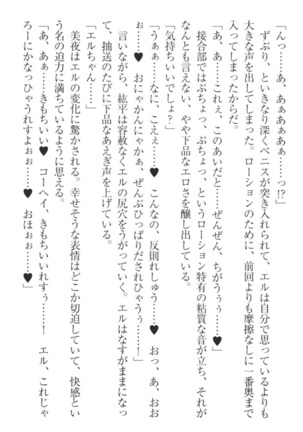 「んっ……あ、あぁあぁあぁ……っ!?」
　ずぶり、といきなり深くペニスが突き入れられて、エルは自分で思っているよりも
大きな声を出してしまった。ローションのために、前回よりも摩擦なしに一番奥まで
入ってしまったからだ。
「あ、あ……これぇ、このあいだと……ぜんぜん、ちがうぅぅ……♥」
　接合部ではぷちょっ、ぷちょっ、というローション特有の粘質な音が立ち、それが
なんとも言えない、やや下品なエロさを醸し出している。
「気持ちいいでしょ？」
「うぁぁ……なに、こえぇ……♥　こんなの、反則れしゅう……♥　おっ、あ、おお
ぉ……♥　おにゃかんにゃかぁ、ぜんぶひっぱりだされひゃうぅ……！」
　言いながら、紘平は容赦なくエルの尻穴をうがっていく。エルはなすがままになっ
て、抽送のたびに下品なあえぎ声を上げている。
「エルちゃん……」
　美夜はエルの変化に驚かされる。幸せそうな表情はどこか切迫していて、快感とい
う名の迫力に満ちているように思える。
「あ、あぁ……きもちいい♥　コーヘイ、きもちいいれすぅ……！　エル、これじゃ
ろーにかなっひゃうれすよぉぉ……♥　おほぉぉ……♥」